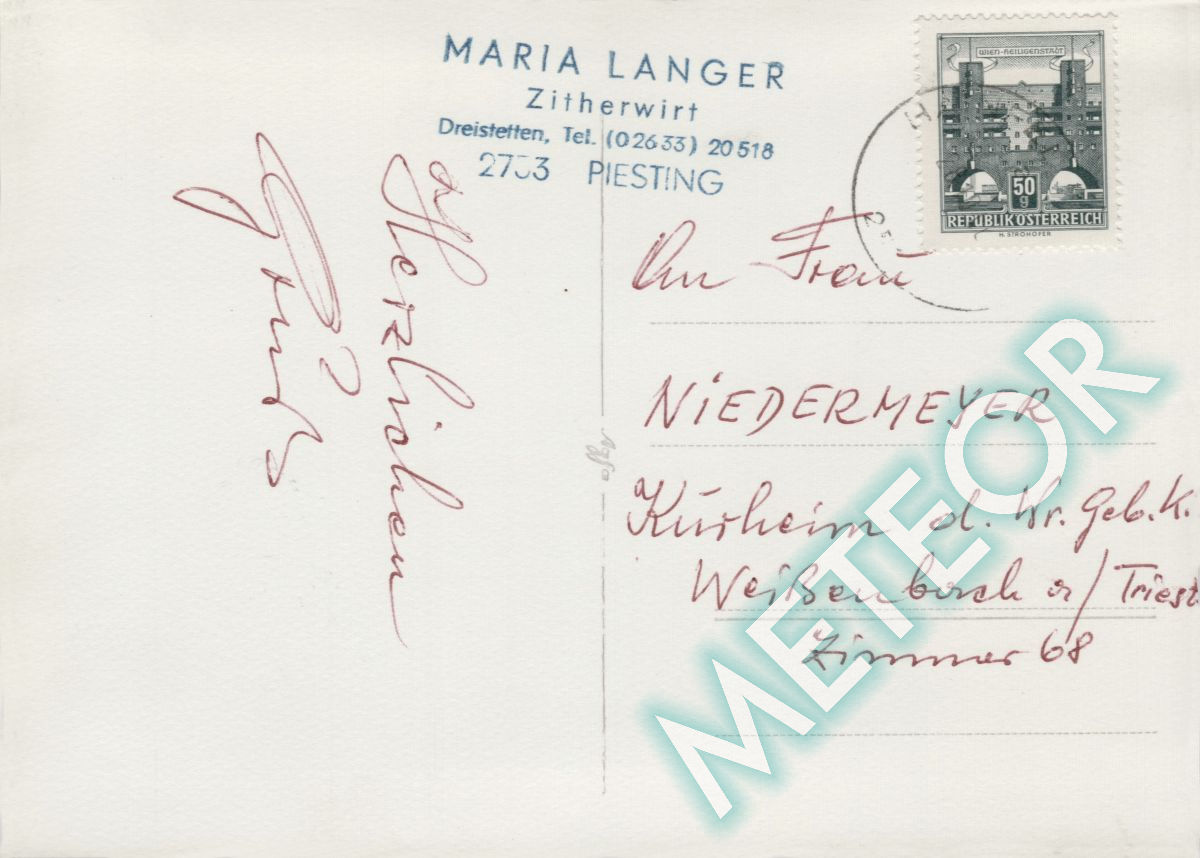 MARIA LANGER
Zitherwirt
Dreistetten, Tel. (02633) 20518
2753 PIESTING
WIEN-HEILIGENSTADT
50
g
REPUBLIK ÖSTERREICH
H. STROHOFER
Herzlichen
Gruß
An Frau
NIEDERMEYER
Kurheim d. Wr. Geb. K.
Weißenbach a/Triest
Zimmer 68
METEOR